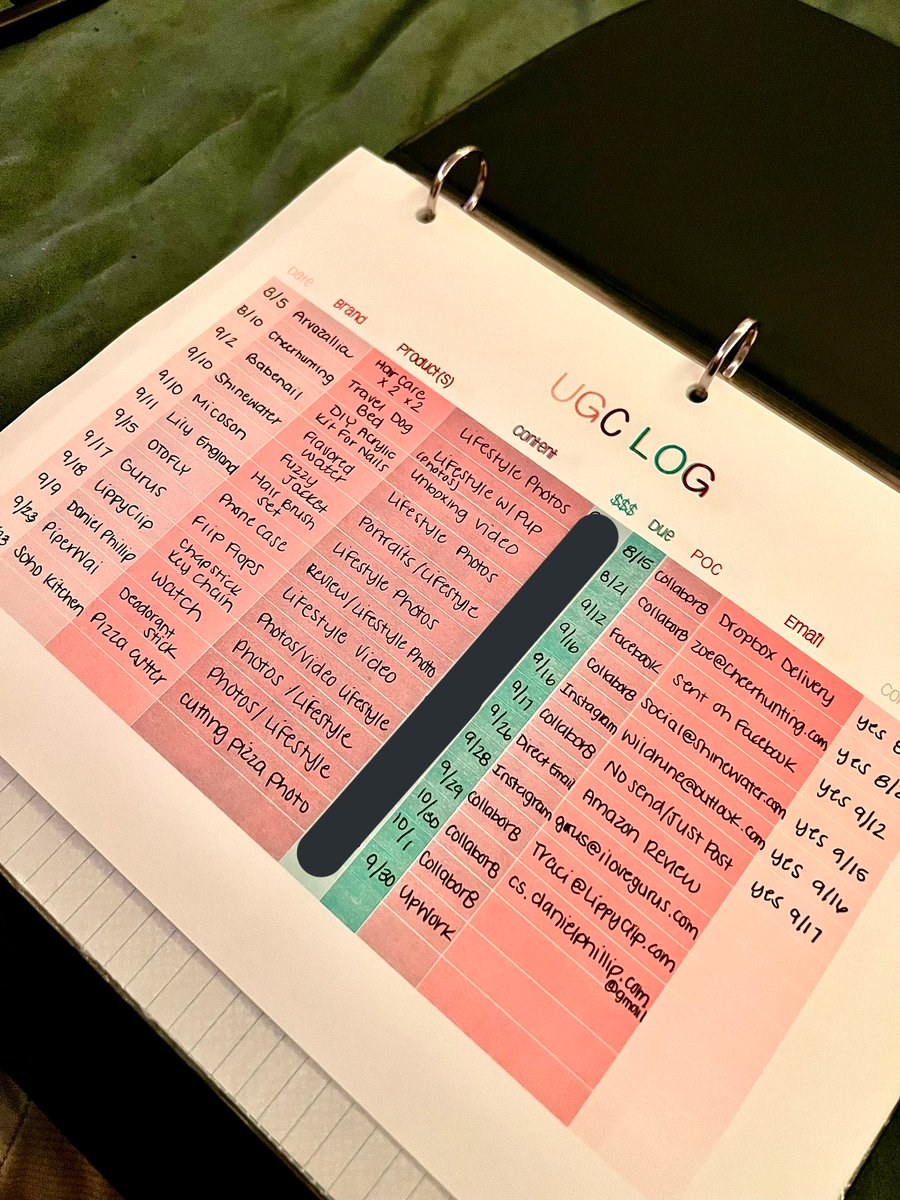 UGC LOG
Date Brand Product(s) Content $$$ Due POC Email
8/5 Arvazallia Hair Care x 2 x 2 Lifestyle Photos 8/15 CollaborB Dropbox Delivery yes
8/10 Cheerhunting Travel Dog Bed Lifestyle w/ Pup (photos) 8/21 CollaborB zoe@cheerhunting.com yes
9/2 Babenail DIY Acrylic Kit for Nails Unboxing Video 9/12 Facebook sent on Facebook yes 9/12
9/10 Shinewater Flavored Water Lifestyle Photos 9/16 CollaborB social@shinewater.com yes 9/15
9/10 Micoson Fuzzy Jacket Portraits/Lifestyle 9/16 Instagram wildrune@outlook.com yes 9/16
9/11 Lily England Hair Brush Set Lifestyle Photos 9/17 CollaborB No send/Just Post yes 9/17
9/15 OTOFLY Phone Case Review/Lifestyle Photo 9/26 Direct Email Amazon Review
9/17 Gurus Flip Flops Lifestyle Video 9/28 Instagram gurus@ilovegurus.com
9/18 LippyClip Chapstick Key Chain Photos/Video Lifestyle 9/29 CollaborB Traci@LippyClip.com
9/9 Daniel Phillip Watch Photos/Lifestyle 10/30 CollaborB cs.danielphillip.com @gmail
9/23 PiperWai Deodorant Stick Photos/Lifestyle 10/1 CollaborB
Soho Kitchen Pizza Cutter Cutting Pizza Photo 9/30 UpWork